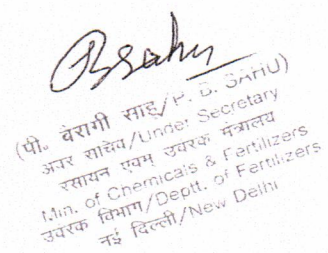 Bsahu
(पी. बैरागी साहू/P. B. SAHU)
अवर सचिव/Under Secretary
रसायन एवम् उवरक मंत्रालय
Min. of Chemicals & Fertilizers
उवरक विभाग/Deptt. of Fertilizers
नई दिल्ली/New Delhi